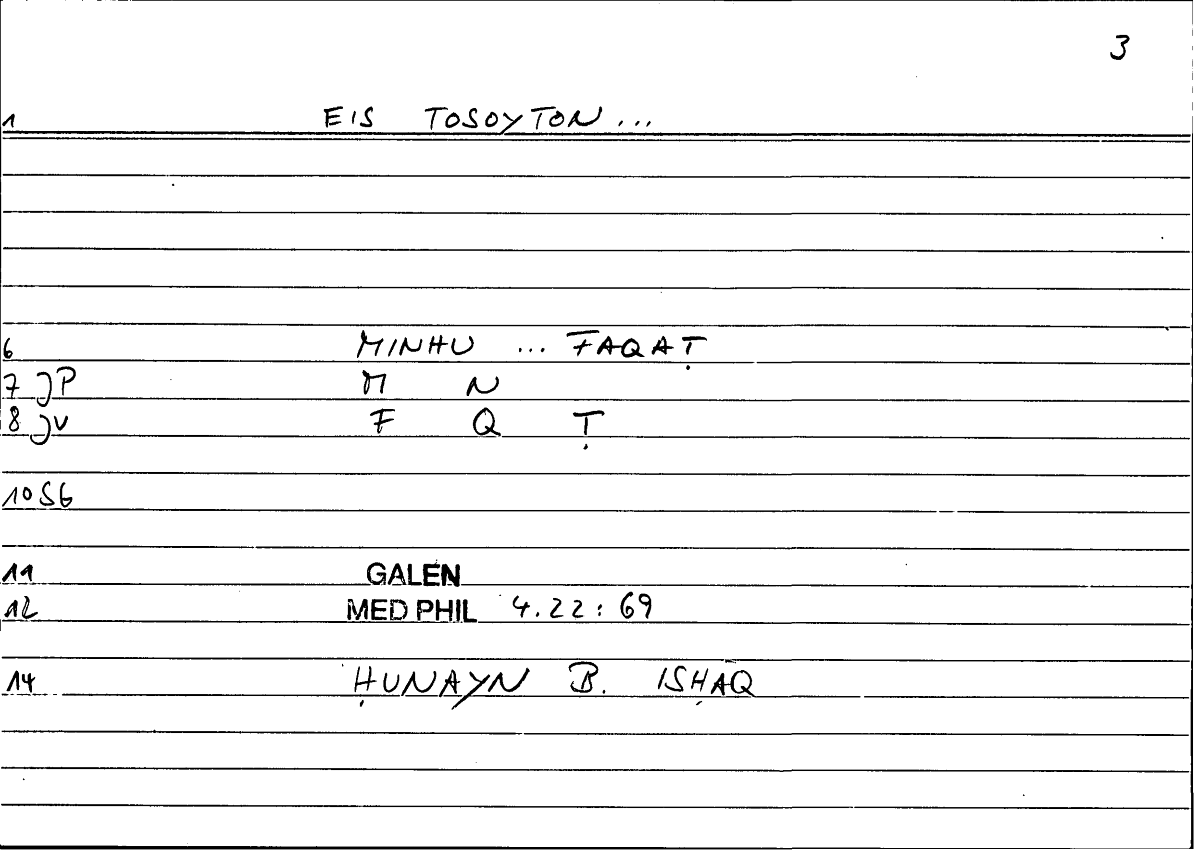 3
1 EIS TOSOYTON...
6 MINHU ... FAQAṬ
7 JP M N
8 JV F Q Ṭ
10 SG
11 GALEN
12 MED PHIL 4.22:69
14 ḤUNAYN B. ISḤAQ